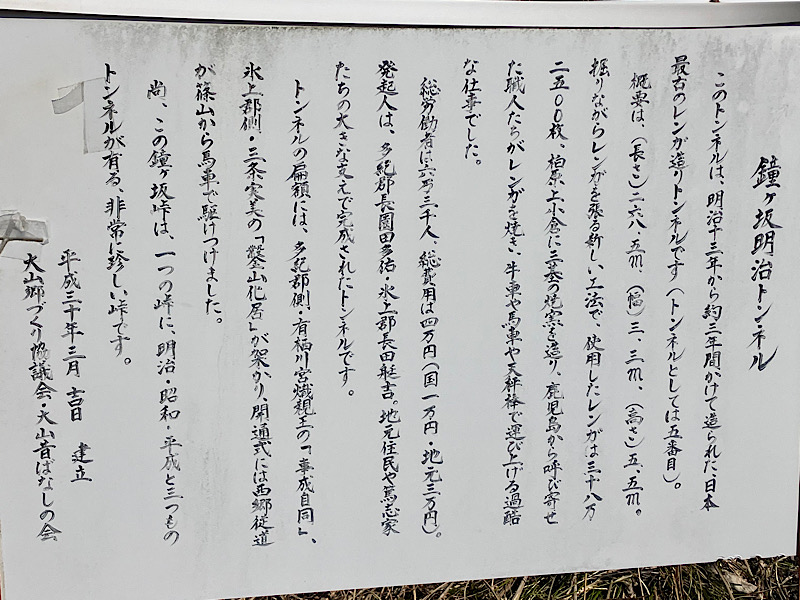 鐘ヶ坂明治トンネル
このトンネルは、明治十三年から約三年間かけて造られた、日本
最古のレンガ造りトンネルです(トンネルとしては五番目)。
概要は、(長さ)二六八・五m、(幅)三、三m、(高さ)五、五m。
掘りながらレンガを張る新しい工法で、使用したレンガは三十八万
二五〇〇枚、柏原上小倉に三基の焼窯を造り、鹿児島から呼び寄せ
た職人たちがレンガを焼き、牛車や馬車や天秤棒で運び上げる過酷
な仕事でした。
総労働者は六万三千人、総費用は四万円(国一万円・地元三万円)。
発起人は、多紀郡長園田多祐・氷上郡長田艇吉。地元住民や篤志家
たちの大きな支えで完成されたトンネルです。
トンネルの扁額には、多紀郡側・有栖川宮熾親王の「事成自同」、
氷上郡側・三条実美の「鑿山化居」が架かり、開通式には西郷従道
が篠山から馬車で駆けつけました。
尚、この鐘ヶ坂峠は、一つの峠に、明治・昭和・平成と三つもの
トンネルが有る、非常に珍しい峠です。
平成三十年三月吉日 建立
大山郷づくり協議会・大山昔ばなしの会